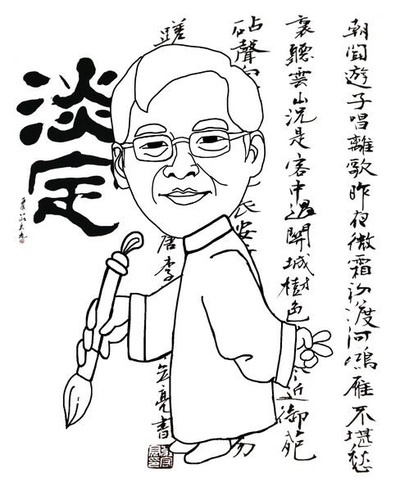 朝聞遊子唱離歌昨夜微霜初渡河鴻雁不堪愁
裏聽雲山況是客中過關城樹色近御苑
砧聲長安
蹉唐李亮書
淡定